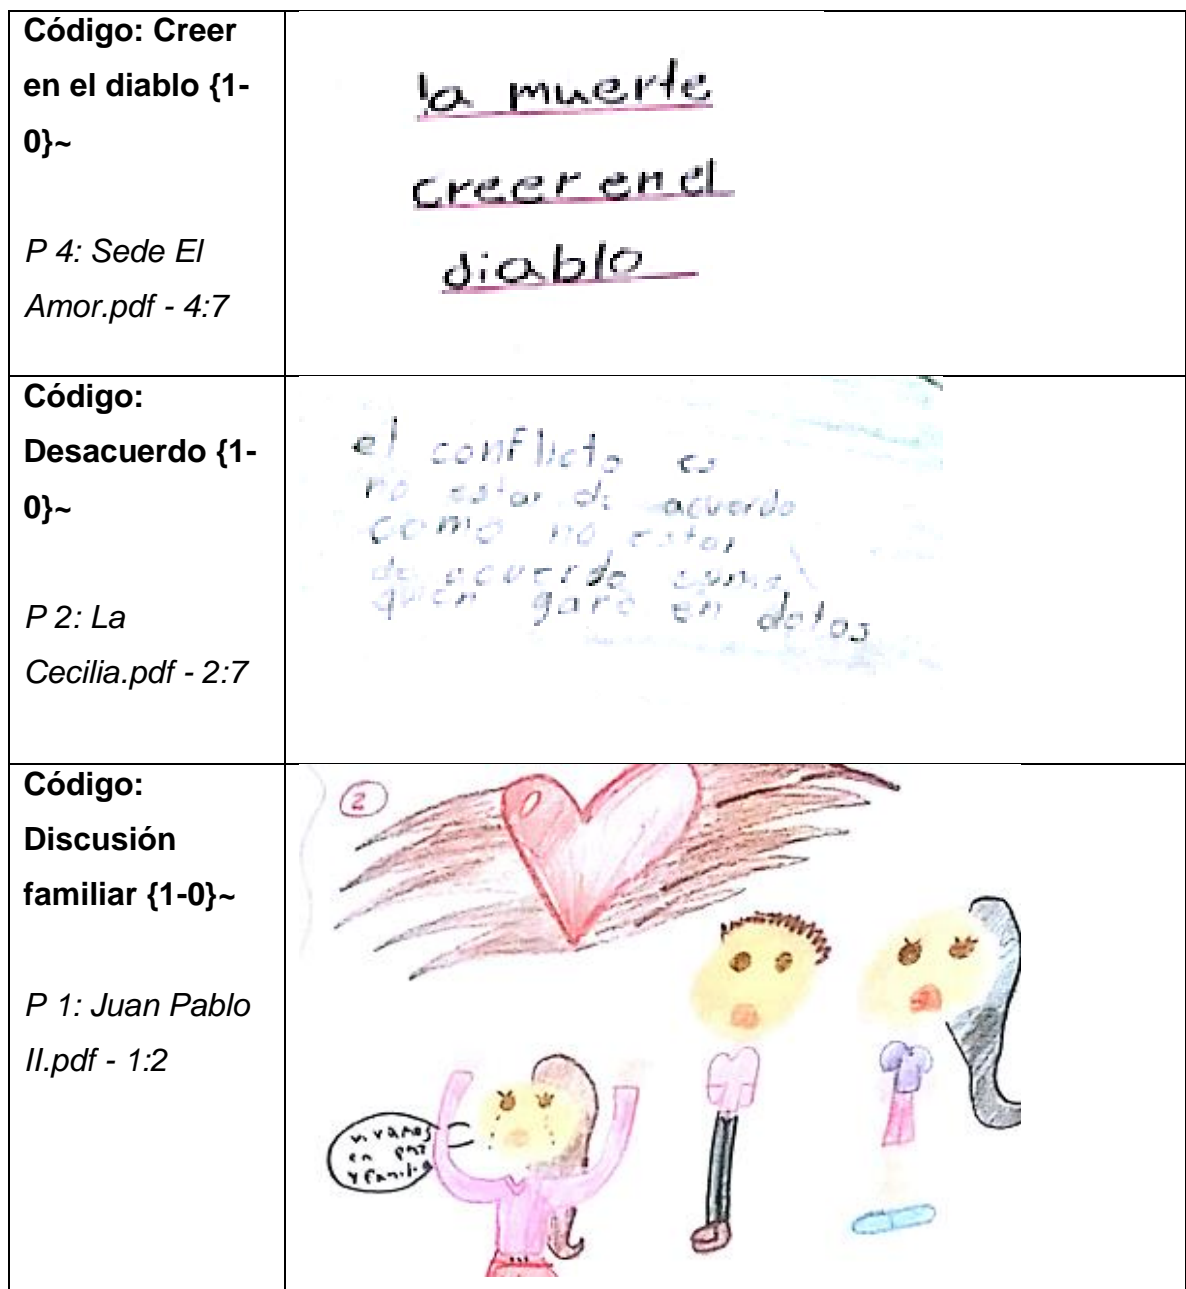 Código: Creer
en el diablo {1-
0}~
P 4: Sede El
Amor.pdf - 4:7
la muerte
creer en el
diablo
Código:
Desacuerdo {1-
0}~
P 2: La
Cecilia.pdf - 2:7
el conflicto es
no estar de acuerdo
como no estar
de acuerdo como
quen garo en dotos
Código:
Discusión
familiar {1-0}~
P 1: Juan Pablo
II.pdf - 1:2
2
vivamos
en paz
y familia